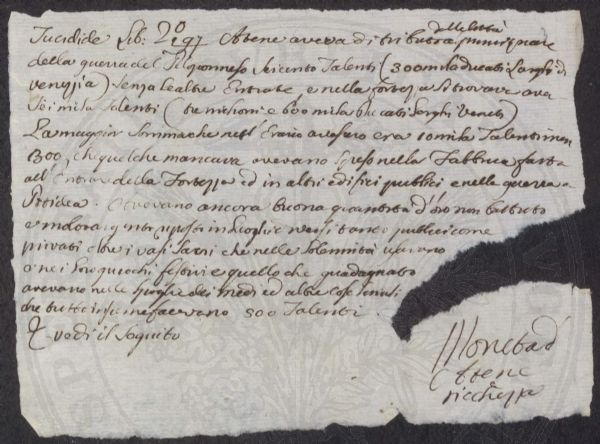 Tucidide Lib: 2º Atene aveva di tributo delle Città
della guerra del seicento Talenti (300 mila ducati Larghi di
Venezia) senza le altre Entrate, e nella fortezza si trovava ava
sei mila Talenti (tre milioni e 600 mila Ducati Larghi Veneti)
La maggior Somma che nell' Erario avessero era 10 mila Talenti men
300, che quel che mancava avevano speso nella Fabbrica fatt
all' Entrar della Fortezza ed in altri edifici pubblici, e nella guerra
Potidea. Avevano ancora buona quantità d' oro non battuto
e molora in luoghi e versi tanto publici come
privati oltre i vasi Sacri che nelle Solennità usavano
o nei e quello che guadagnato
avevano nelle spoglie dei medi ed altre cose simili
che tutto insieme facevano 500 Talenti.
vedi il Seguito
Moneta d'
Atene
ricchezze